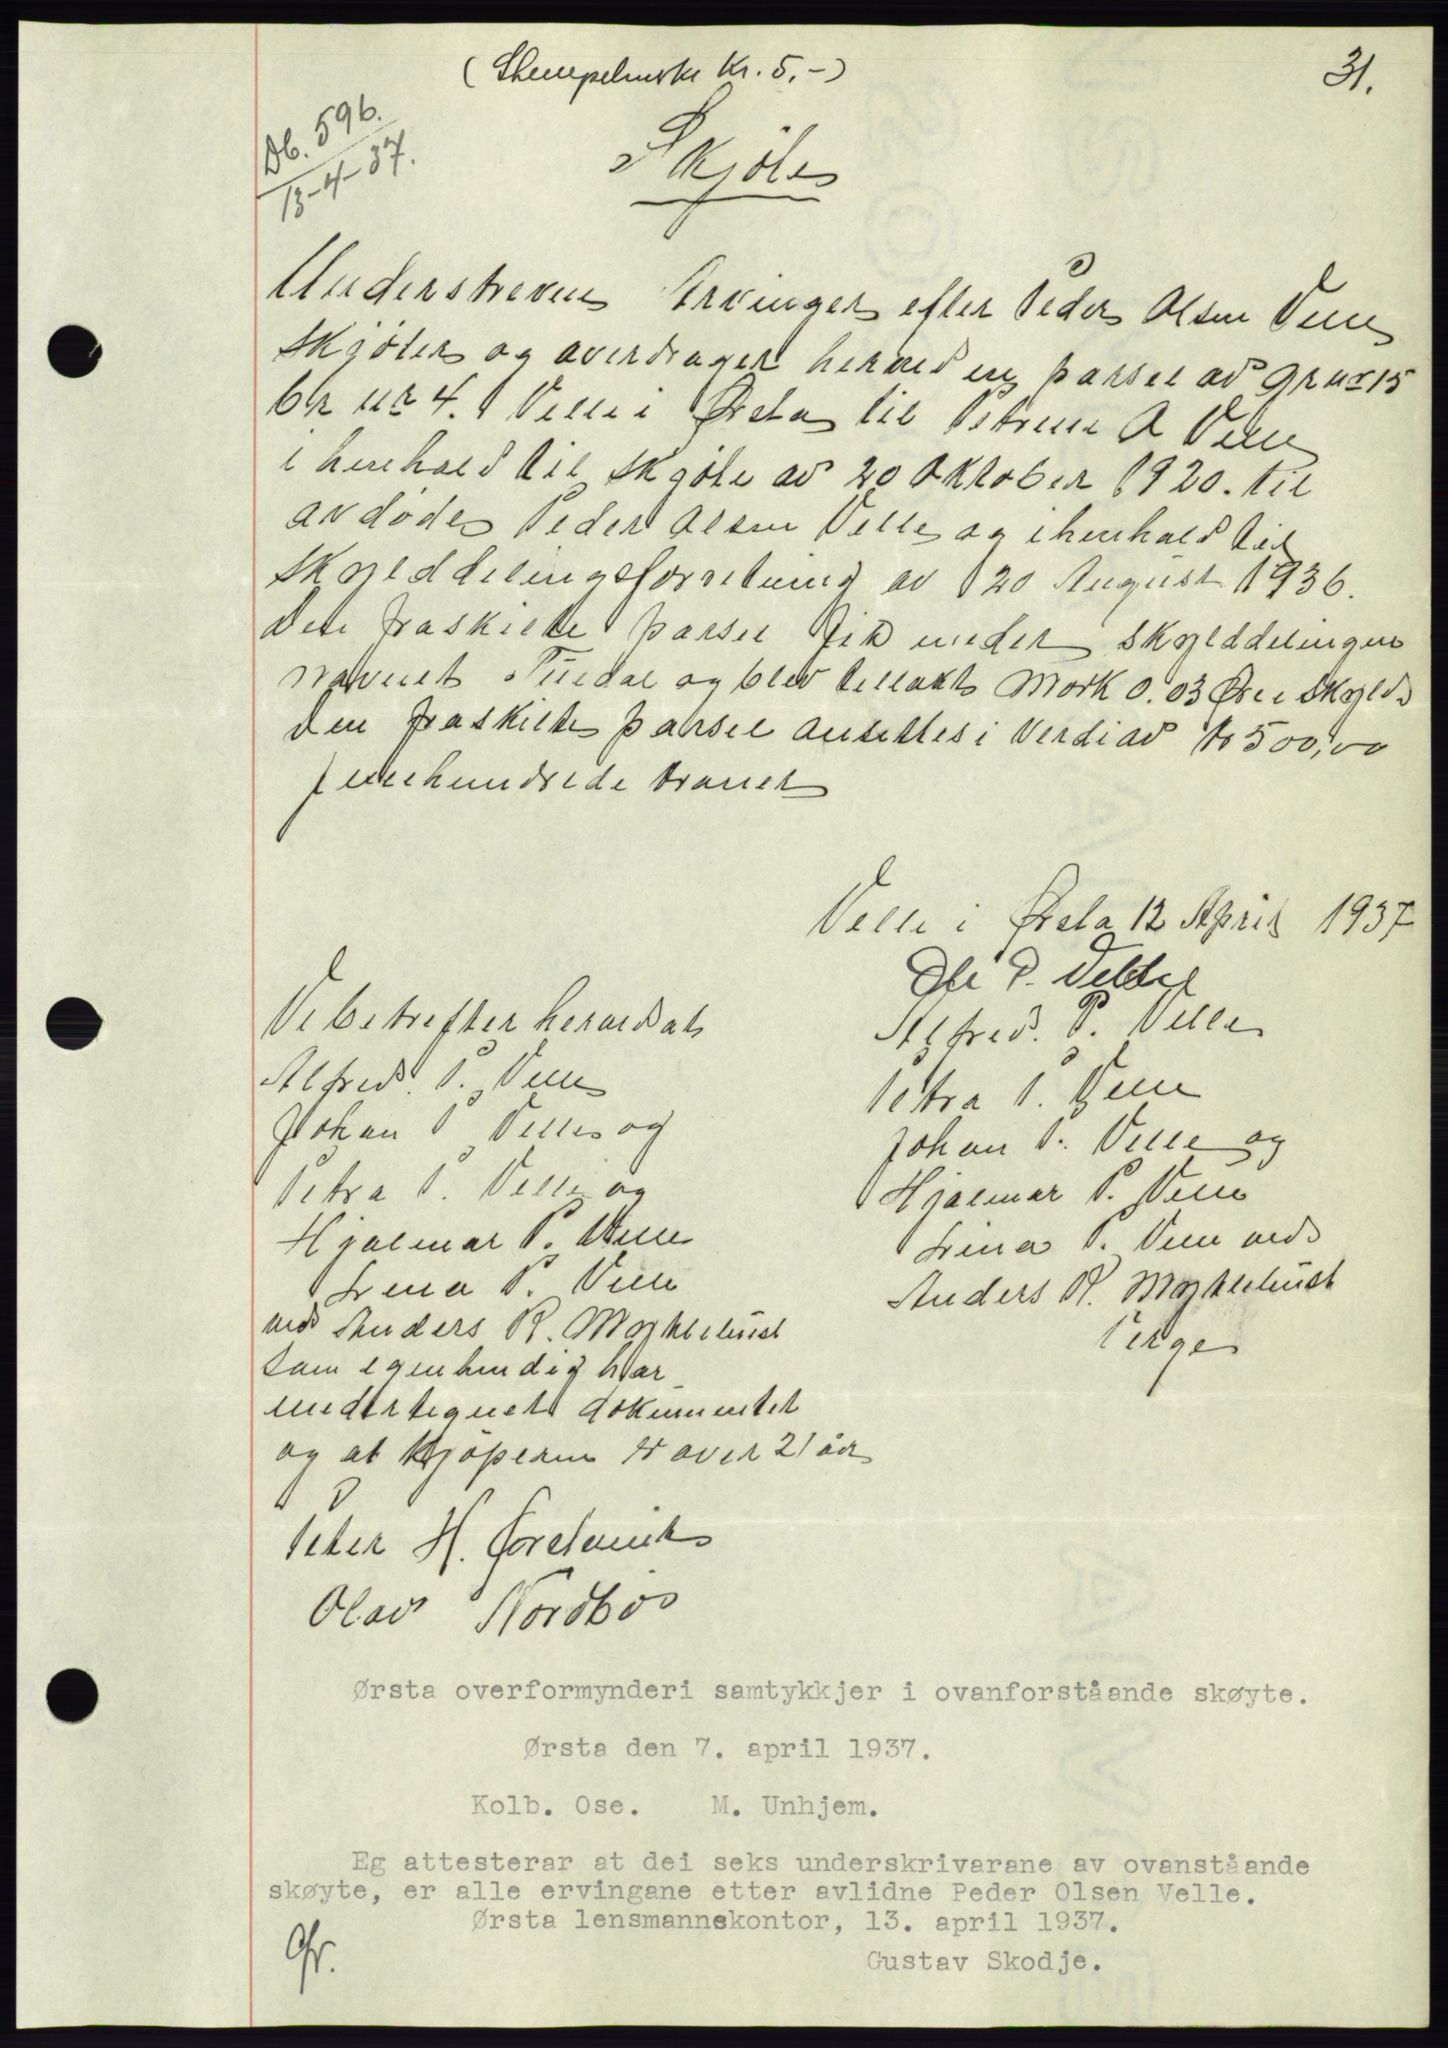 (Stempelmerke Kr. 5.-)
31.
Db. 596.
13-4-37.
Skjöte
Understrevne Arvinger efter Peder Olsen Velle
skjöter og averdrager herved en parsel av gr nr 15
br nr 4. Velle i Ørsta til Petrine A Velle
i henhold til skjöte av 20 Oktober 1920. til
avdöde Peder Olsen Velle og i henhold til
skylddelingsforretning av 20 August 1936.
Den fraskilte parsel fik under skylddelingen
navnet og blev tillakt Mark 0.03 Øre i skyld
den fraskilte parsel ansettes i Verdi av kr 500,00
femhundrede kroner
Velle i Ørsta 12 April 1937
Ole P. Velle
Alfred. P. Velle
Petra P. Velle
Johan P. Velle og
Hjalmar P. Velle
Lina P. Velle ved
Anders R. Myklebust
Verge
Vi betrefter herved at
Alfred. P. Velle
Johan P Velle og
Petra P. Velle og
Hjalmar P. Velle
Lina P. Velle
ved Anders R. Myklebust
som egenhendig har
undertegnet dokumentet
og at kjöperen er over 21 år
Peter H.
Olav Nordbø
Ørsta overformynderi samtykkjer i ovanforståande skøyte.
Ørsta den 7. april 1937.
Kolb. Ose. M. Unhjem.
Eg attesterar at dei seks underskrivarane av ovanståande
skøyte, er alle ervingane etter avlidne Peder Olsen Velle.
Ørsta lensmannskontor, 13. april 1937.
Gustav Skodje.